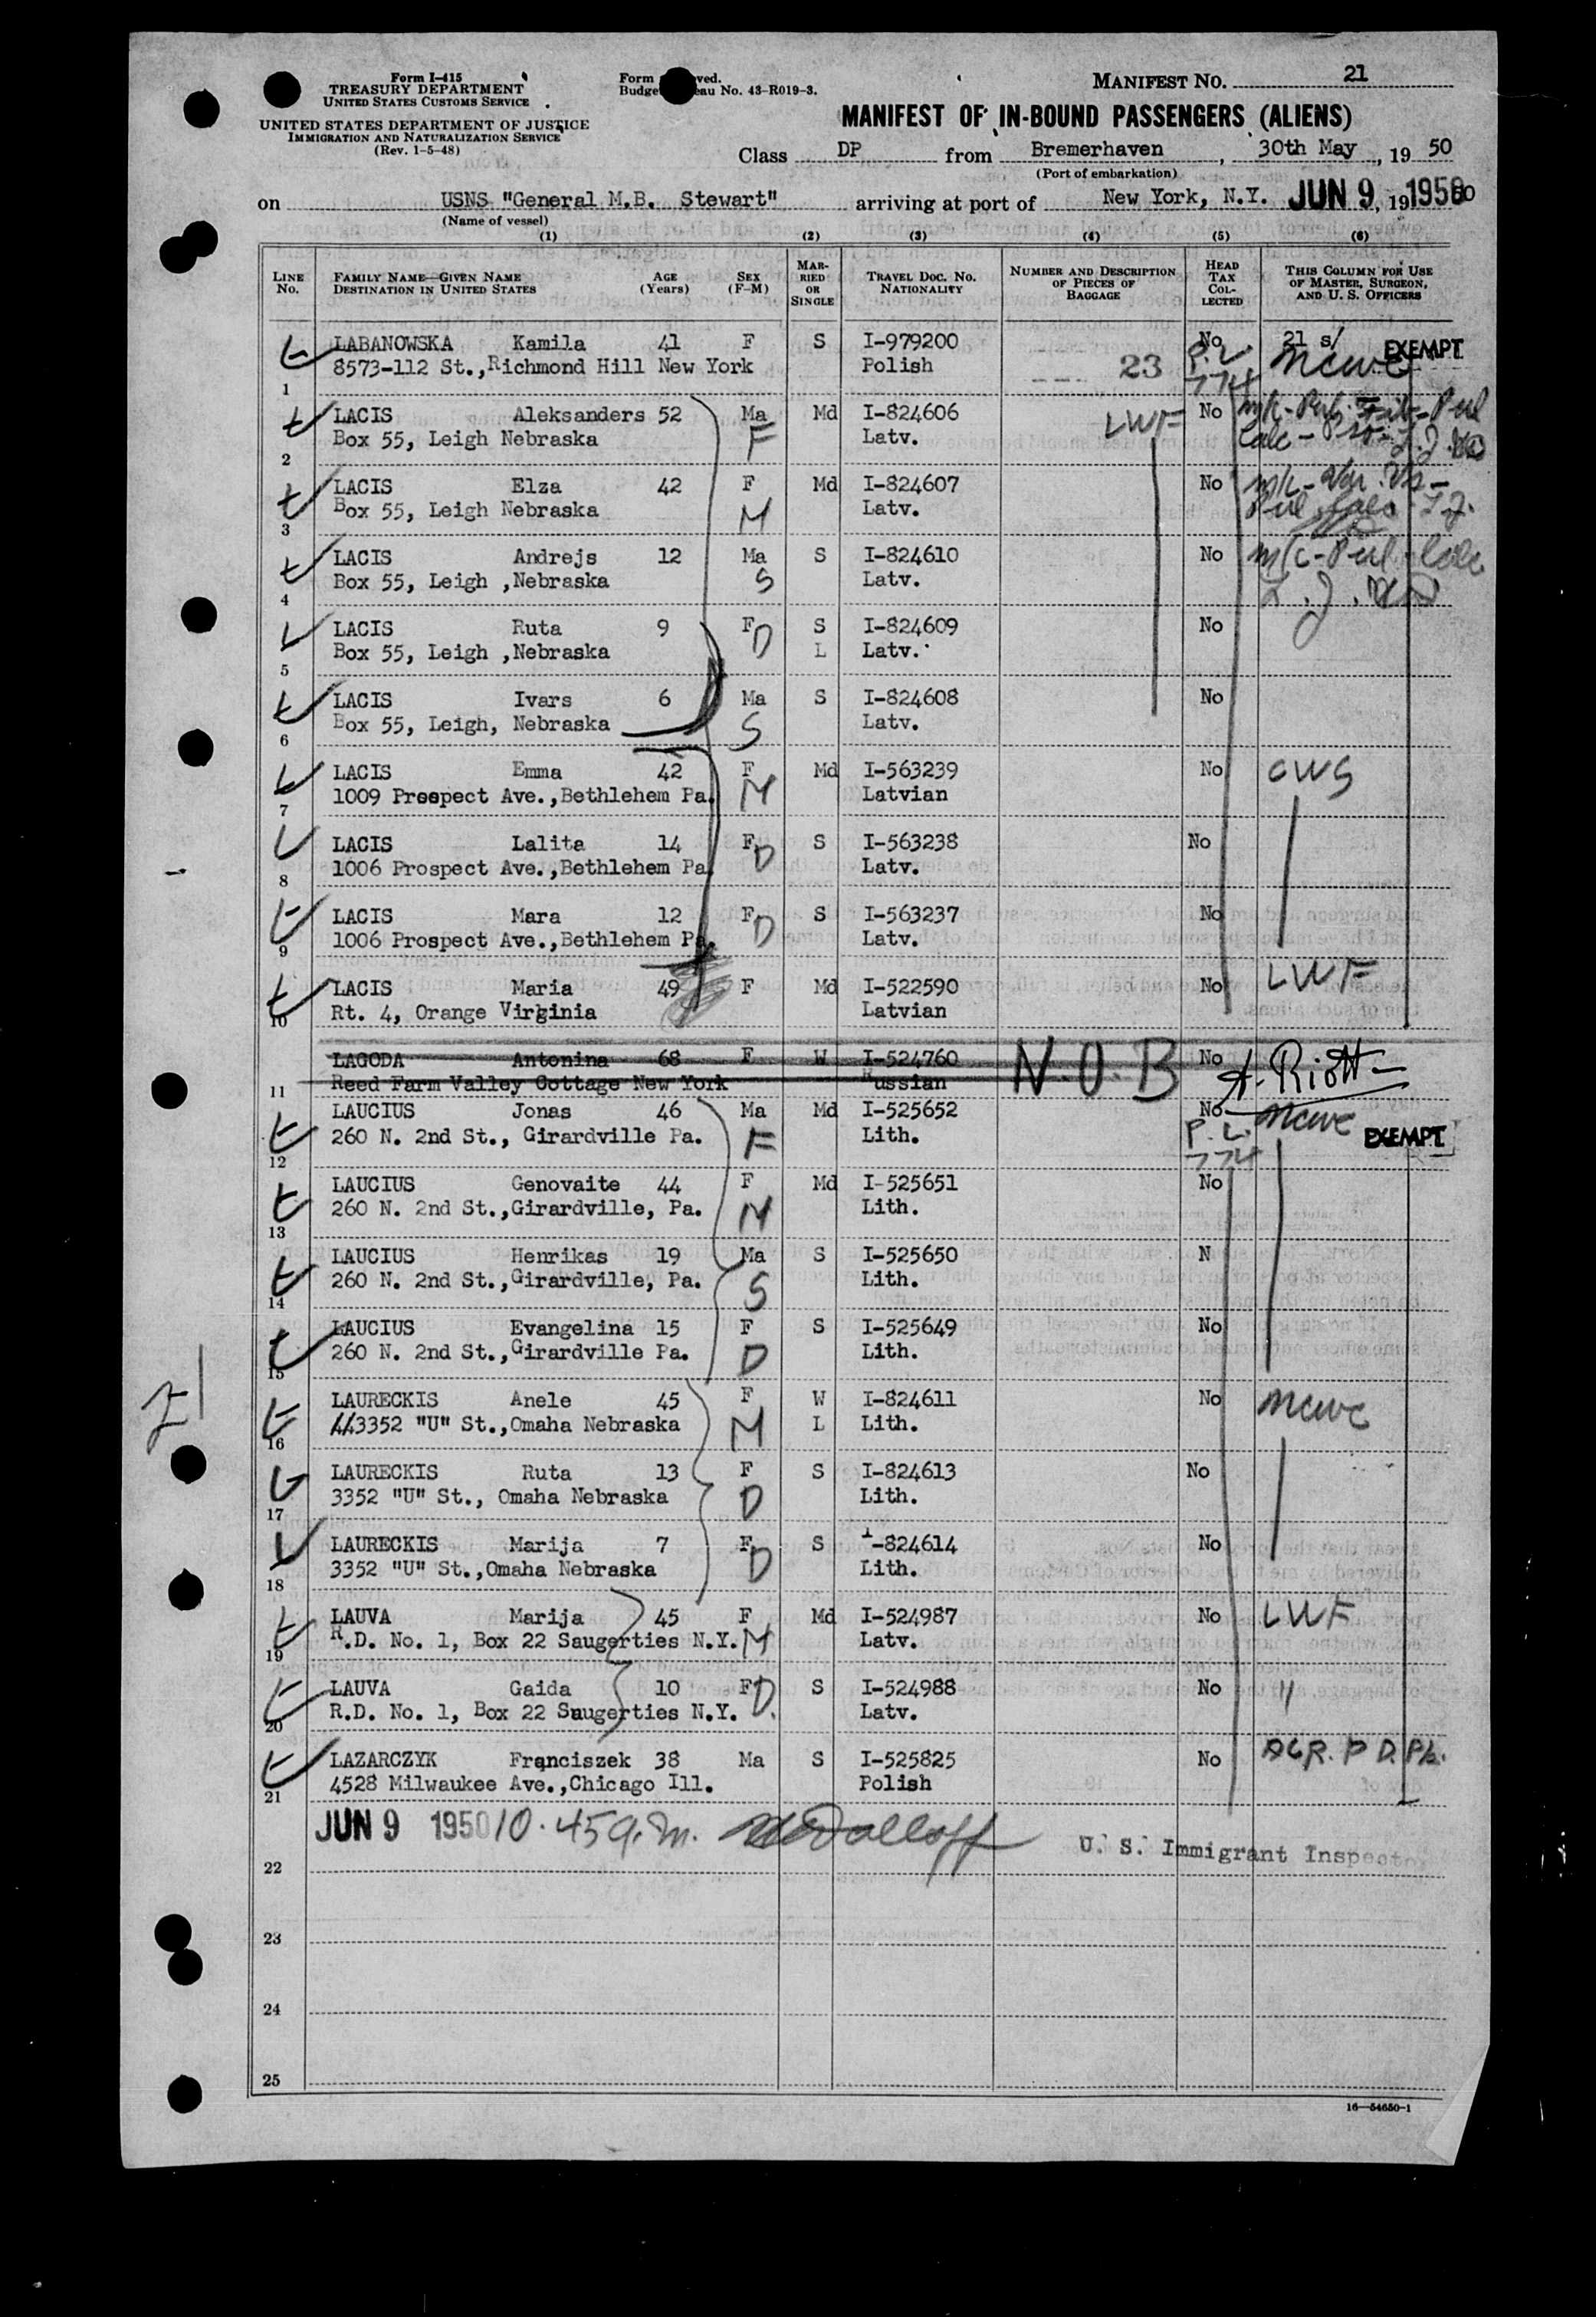 Form I-415
TREASURY DEPARTMENT
UNITED STATES CUSTOMS SERVICE
UNITED STATES DEPARTMENT OF JUSTICE
IMMIGRATION AND NATURALIZATION SERVICE
(Rev. 1-5-48)
Form ved.
Budge au No. 43-R019-3.
MANIFEST NO. 21
MANIFEST OF IN-BOUND PASSENGERS (ALIENS)
Class DP from Bremerhaven, 30th May, 19 50
(Port of embarkation)
on USNS "General M.B. Stewart" arriving at port of New York, N.Y. JUN 9, 19 1950
(Name of vessel)
(1) (2) (3) (4) (5) (6)
LINE No. FAMILY NAME—GIVEN NAME DESTINATION IN UNITED STATES AGE (Years) SEX (F-M) MARRIED OR SINGLE TRAVEL DOC. NO. NATIONALITY NUMBER AND DESCRIPTION OF PIECES OF BAGGAGE HEAD TAX COLLECTED THIS COLUMN FOR USE OF MASTER, SURGEON, AND U. S. OFFICERS
LABANOWSKA Kamila 41 F S I-979200 No 21 s/ EXEMPT
8573-112 St.,Richmond Hill New York Polish 23 P.L. 774 ncwc
1
LACIS Aleksanders 52 Ma Md I-824606 LWF No
Box 55, Leigh Nebraska F Latv.
2
LACIS Elza 42 F Md I-824607 No
Box 55, Leigh Nebraska M Latv.
3
LACIS Andrejs 12 Ma S I-824610 No
Box 55, Leigh ,Nebraska S Latv.
4
LACIS Ruta 9 F D S I-824609 No
Box 55, Leigh ,Nebraska L Latv.
5
LACIS Ivars 6 Ma S I-824608 No
Box 55, Leigh, Nebraska S Latv.
6
LACIS Emma 42 F Md I-563239 No CWS
1009 Prospect Ave.,Bethlehem Pa. M Latvian
7
LACIS Lalita 14 F D S I-563238 No
1006 Prospect Ave.,Bethlehem Pa. Latv.
8
LACIS Mara 12 F D S I-563237 No
1006 Prospect Ave.,Bethlehem Pa. Latv.
9
LACIS Maria 49 F Md I-522590 No LWF
Rt. 4, Orange Virginia Latvian
10
LAGODA Antonina 68 F W I-524760 N.O.B No A. Riott
Reed Farm Valley Cottage New York Russian
11
LAUCIUS Jonas 46 Ma Md I-525652 No ncwc
260 N. 2nd St., Girardville Pa. F Lith. P.L. 774 EXEMPT
12
LAUCIUS Genovaite 44 F Md I-525651 No
260 N. 2nd St.,Girardville, Pa. M Lith.
13
LAUCIUS Henrikas 19 Ma S I-525650 N
260 N. 2nd St.,Girardville, Pa. S Lith.
14
LAUCIUS Evangelina 15 F S I-525649 No
260 N. 2nd St.,Girardville Pa. D Lith.
15
LAURECKIS Anele 45 F W I-824611 No ncwc
3352 "U" St.,Omaha Nebraska M L Lith.
16
LAURECKIS Ruta 13 F S I-824613 No
3352 "U" St., Omaha Nebraska D Lith.
17
LAURECKIS Marija 7 F D S I-824614 No
3352 "U" St.,Omaha Nebraska Lith.
18
LAUVA Marija 45 F Md I-524987 No LWF
R.D. No. 1, Box 22 Saugerties N.Y. M Latv.
19
LAUVA Gaida 10 F D. S I-524988 No "
R.D. No. 1, Box 22 Saugerties N.Y. Latv.
20
LAZARCZYK Franciszek 38 Ma S I-525825 No
4528 Milwaukee Ave.,Chicago Ill. Polish
21
JUN 9 1950 10.45 a.m. U. S. Immigrant Inspector
22
23
24
25
16—54650-1